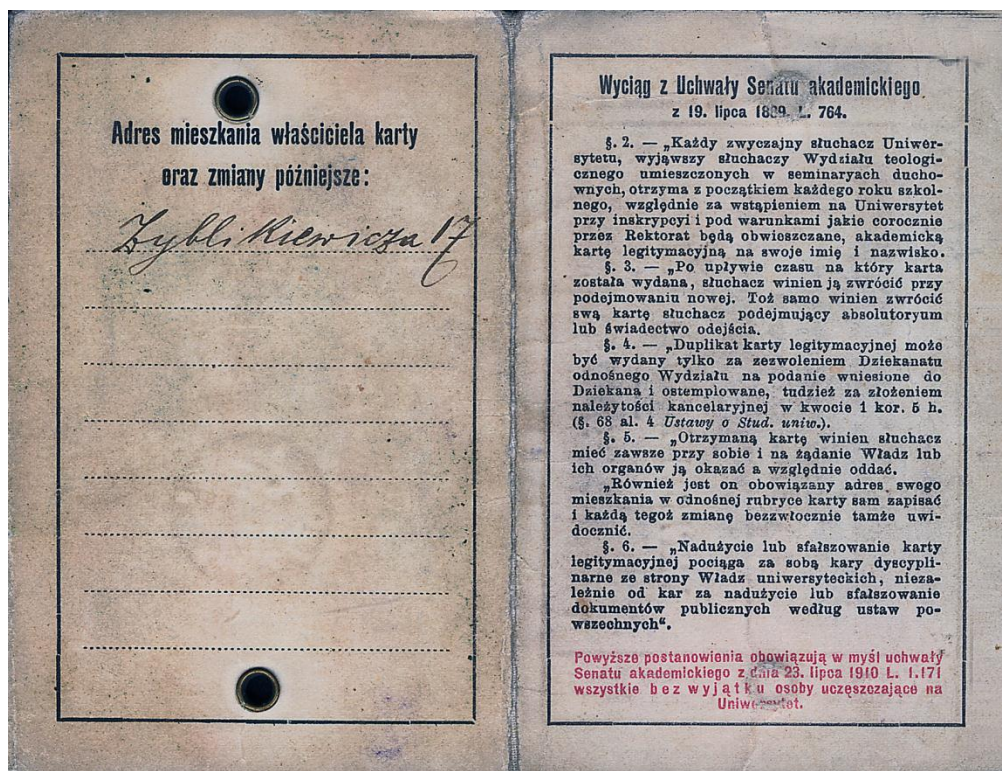 Adres mieszkania właściciela karty
oraz zmiany późniejsze:
Zyblikiewicza 17
Wyciąg z Uchwały Senatu akademickiego
z 19. lipca 1889. L. 764.
§. 2. — „Każdy zwyczajny słuchacz Uniwer-
sytetu, wyjąwszy słuchaczy Wydziału teologi-
cznego umieszczonych w seminaryach ducho-
wnych, otrzyma z początkiem każdego roku szkol-
nego, względnie za wstąpieniem na Uniwersytet
przy inskrypcyi i pod warunkami jakie corocznie
przez Rektorat będą obwieszczane, akademicką
kartę legitymacyjną na swoje imię i nazwisko.
§. 3. — „Po upływie czasu na który karta
została wydana, słuchacz winien ją zwrócić przy
podejmowaniu nowej. Toż samo winien zwrócić
swą kartę słuchacz podejmujący absolutoryum
lub świadectwo odejścia.
§. 4. — „Duplikat karty legitymacyjnej może
być wydany tylko za zezwoleniem Dziekanatu
odnośnego Wydziału na podanie wniesione do
Dziekana i ostemplowane, tudzież za złożeniem
należytości kancelaryjnej w kwocie 1 kor. 5 h.
(§. 68 al. 4 Ustawy o Stud. uniw.).
§. 5. — „Otrzymaną kartę winien słuchacz
mieć zawsze przy sobie i na żądanie Władz lub
ich organów ją okazać a względnie oddać.
„Również jest on obowiązany adres swego
mieszkania w odnośnej rubryce karty sam zapisać
i każdą tegoż zmianę bezzwłocznie tamże uwi-
docznić.
§. 6. — „Nadużycie lub sfałszowanie karty
legitymacyjnej pociąga za sobą kary dyscypli-
narne ze strony Władz uniwersyteckich, nieza-
leżnie od kar za nadużycie lub sfałszowanie
dokumentów publicznych według ustaw po-
wszechnych“.
Powyższe postanowienia obowiązują w myśl uchwały
Senatu akademickiego z dnia 23. lipca 1910 L. 1.171
wszystkie bez wyjątku osoby uczęszczające na
Uniwersytet.